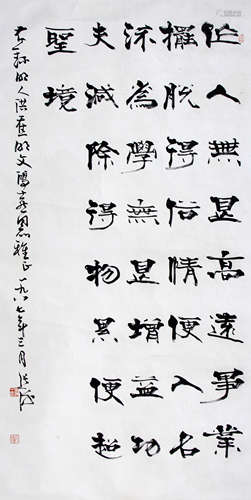 作人無甚高遠事業
擺脫得俗情便入名
流為學無甚增益功
夫減除得物累便超
聖境
明人洪應明文 雅正一九八七年三月